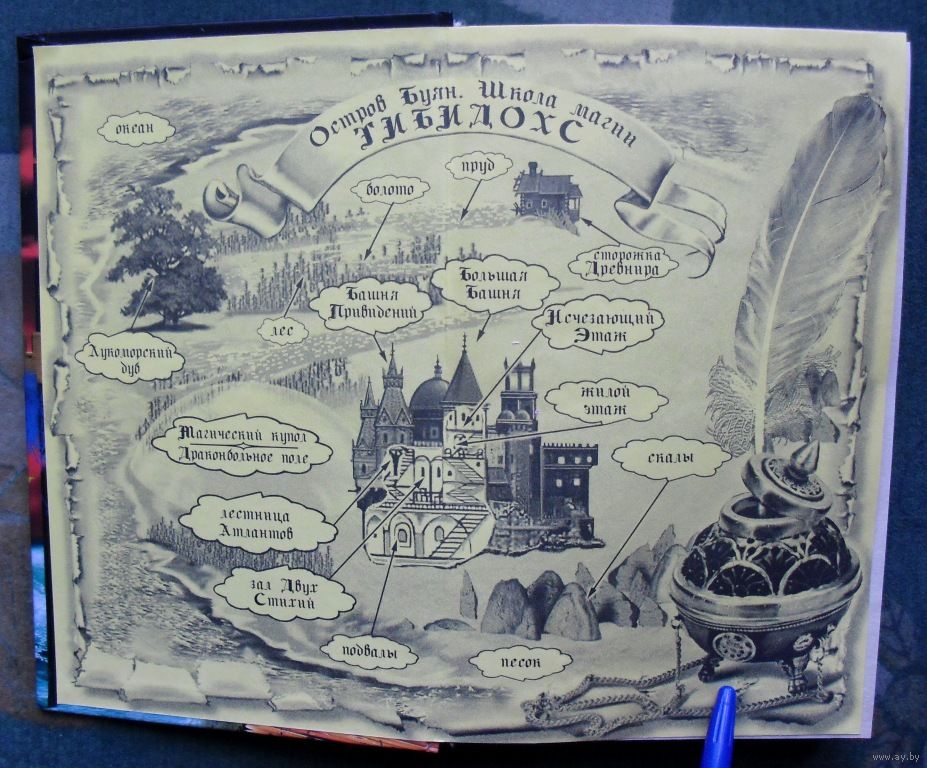 Остров Буян. Школа магии
ТИБИДОХС
океан
пруд
болото
сторожка
Древнира
Большая
Башня
Башня
Привидений
Исчезающий
Этаж
лес
Лукоморский
дуб
жилой
этаж
Магический купол
Драконбольное поле
скалы
лестница
Атлантов
зал Двух
Стихий
подвалы
песок
www.ay.by